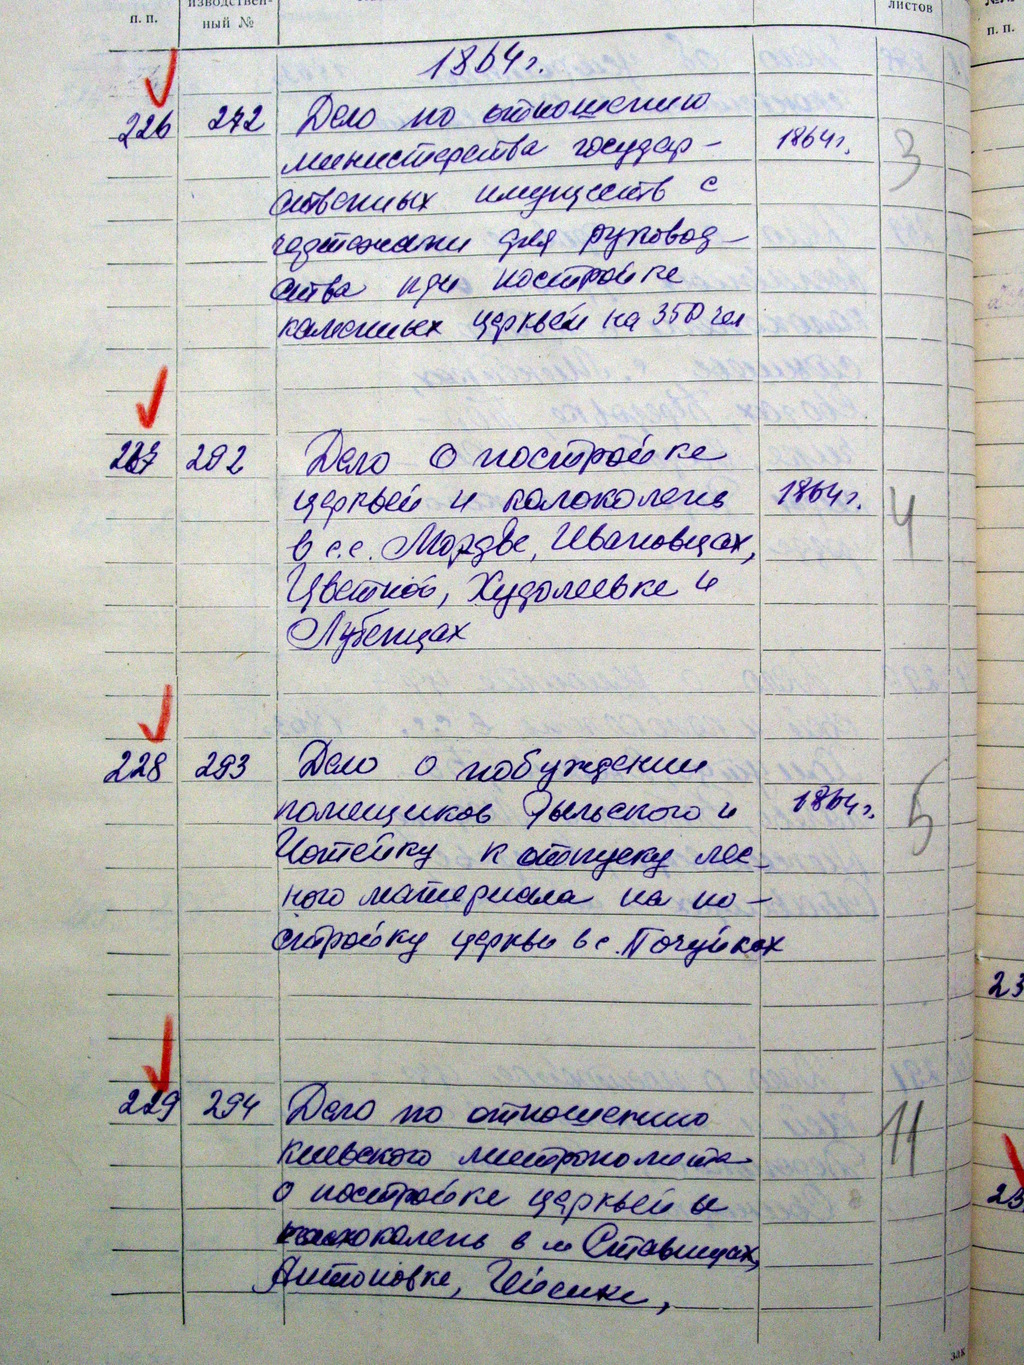 п. п.
изводствен-
ный №
листов
№№
п. п.
1864 г.
226 272 Дело по отношению
министерства государ- 1864 г. 3
ственных имуществ с
чертежами для руковод-
ства при постройке
каменных церквей на 350 чел
227 292 Дело о постройке
церквей и колоколень 1864 г. 4
в с.с. Мордве, Ивановцах,
Цветной, Худолеевке и
Лубенцах
228 293 Дело о побуждении
помещиков Рыльского и 1864 г. 5
к отпуску лес-
ного материала на по-
стройку церкви в с. Почуйках
229 294 Дело по отношению 11
киевского митрополита
о постройке церквей и
колоколень в м Ставищах,
Антоновке,
23
23